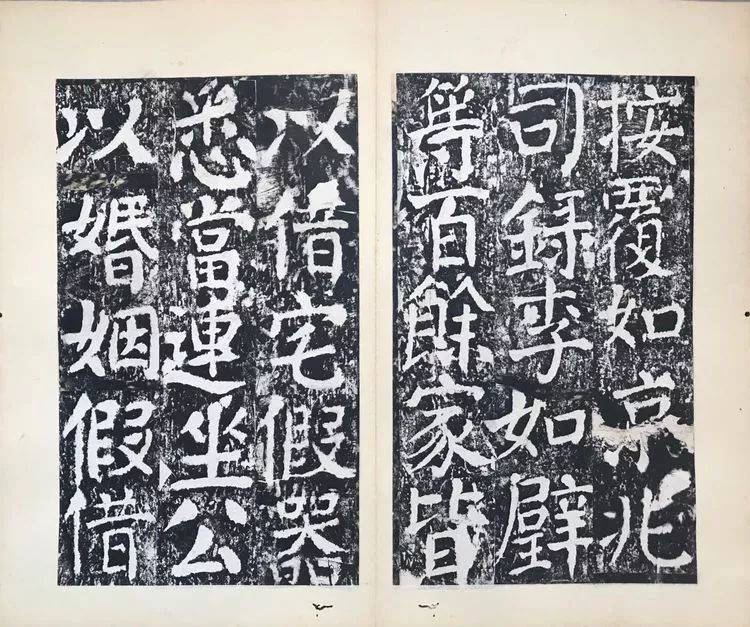 按覆如京兆
司録李如璧
等百餘家皆
以借宅假器
悉當連坐公
以婚姻假借